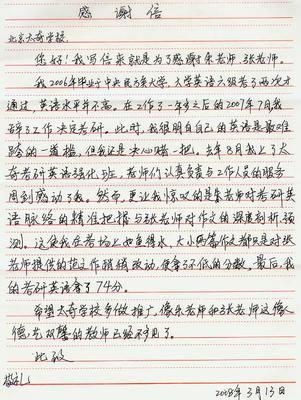 感谢信
北京太奇学校
您好!我写信来就是为了感谢朱老师、张老师。
我2006年毕业于中央民族大学,大学英语六级考了两次才
通过,英语水平并不高。在工作了一年多之后的2007年7月我
辞了工作决定考研。此时,我很明白自己的英语是最难
跨的一道槛,但我还是决心赌一把,去年8月我上了太
奇考研英语强化班,老师们认真负责与工作人员的服务
周到感动了我。然而,更让我惊叹的是朱老师对考研英
语脉络的精准把握与张老师对作文的深度剖析、预
测。这使我在考场上如鱼得水,大小两篇作文都只是对张
老师提供的范文作稍稍改动,便拿了不低的分数,最后,我
的考研英语拿了74分。
希望太奇学校多做推广,像朱老师和张老师这像
德艺双馨的教师已经不多见了。
此致
敬礼
2008年3月13日